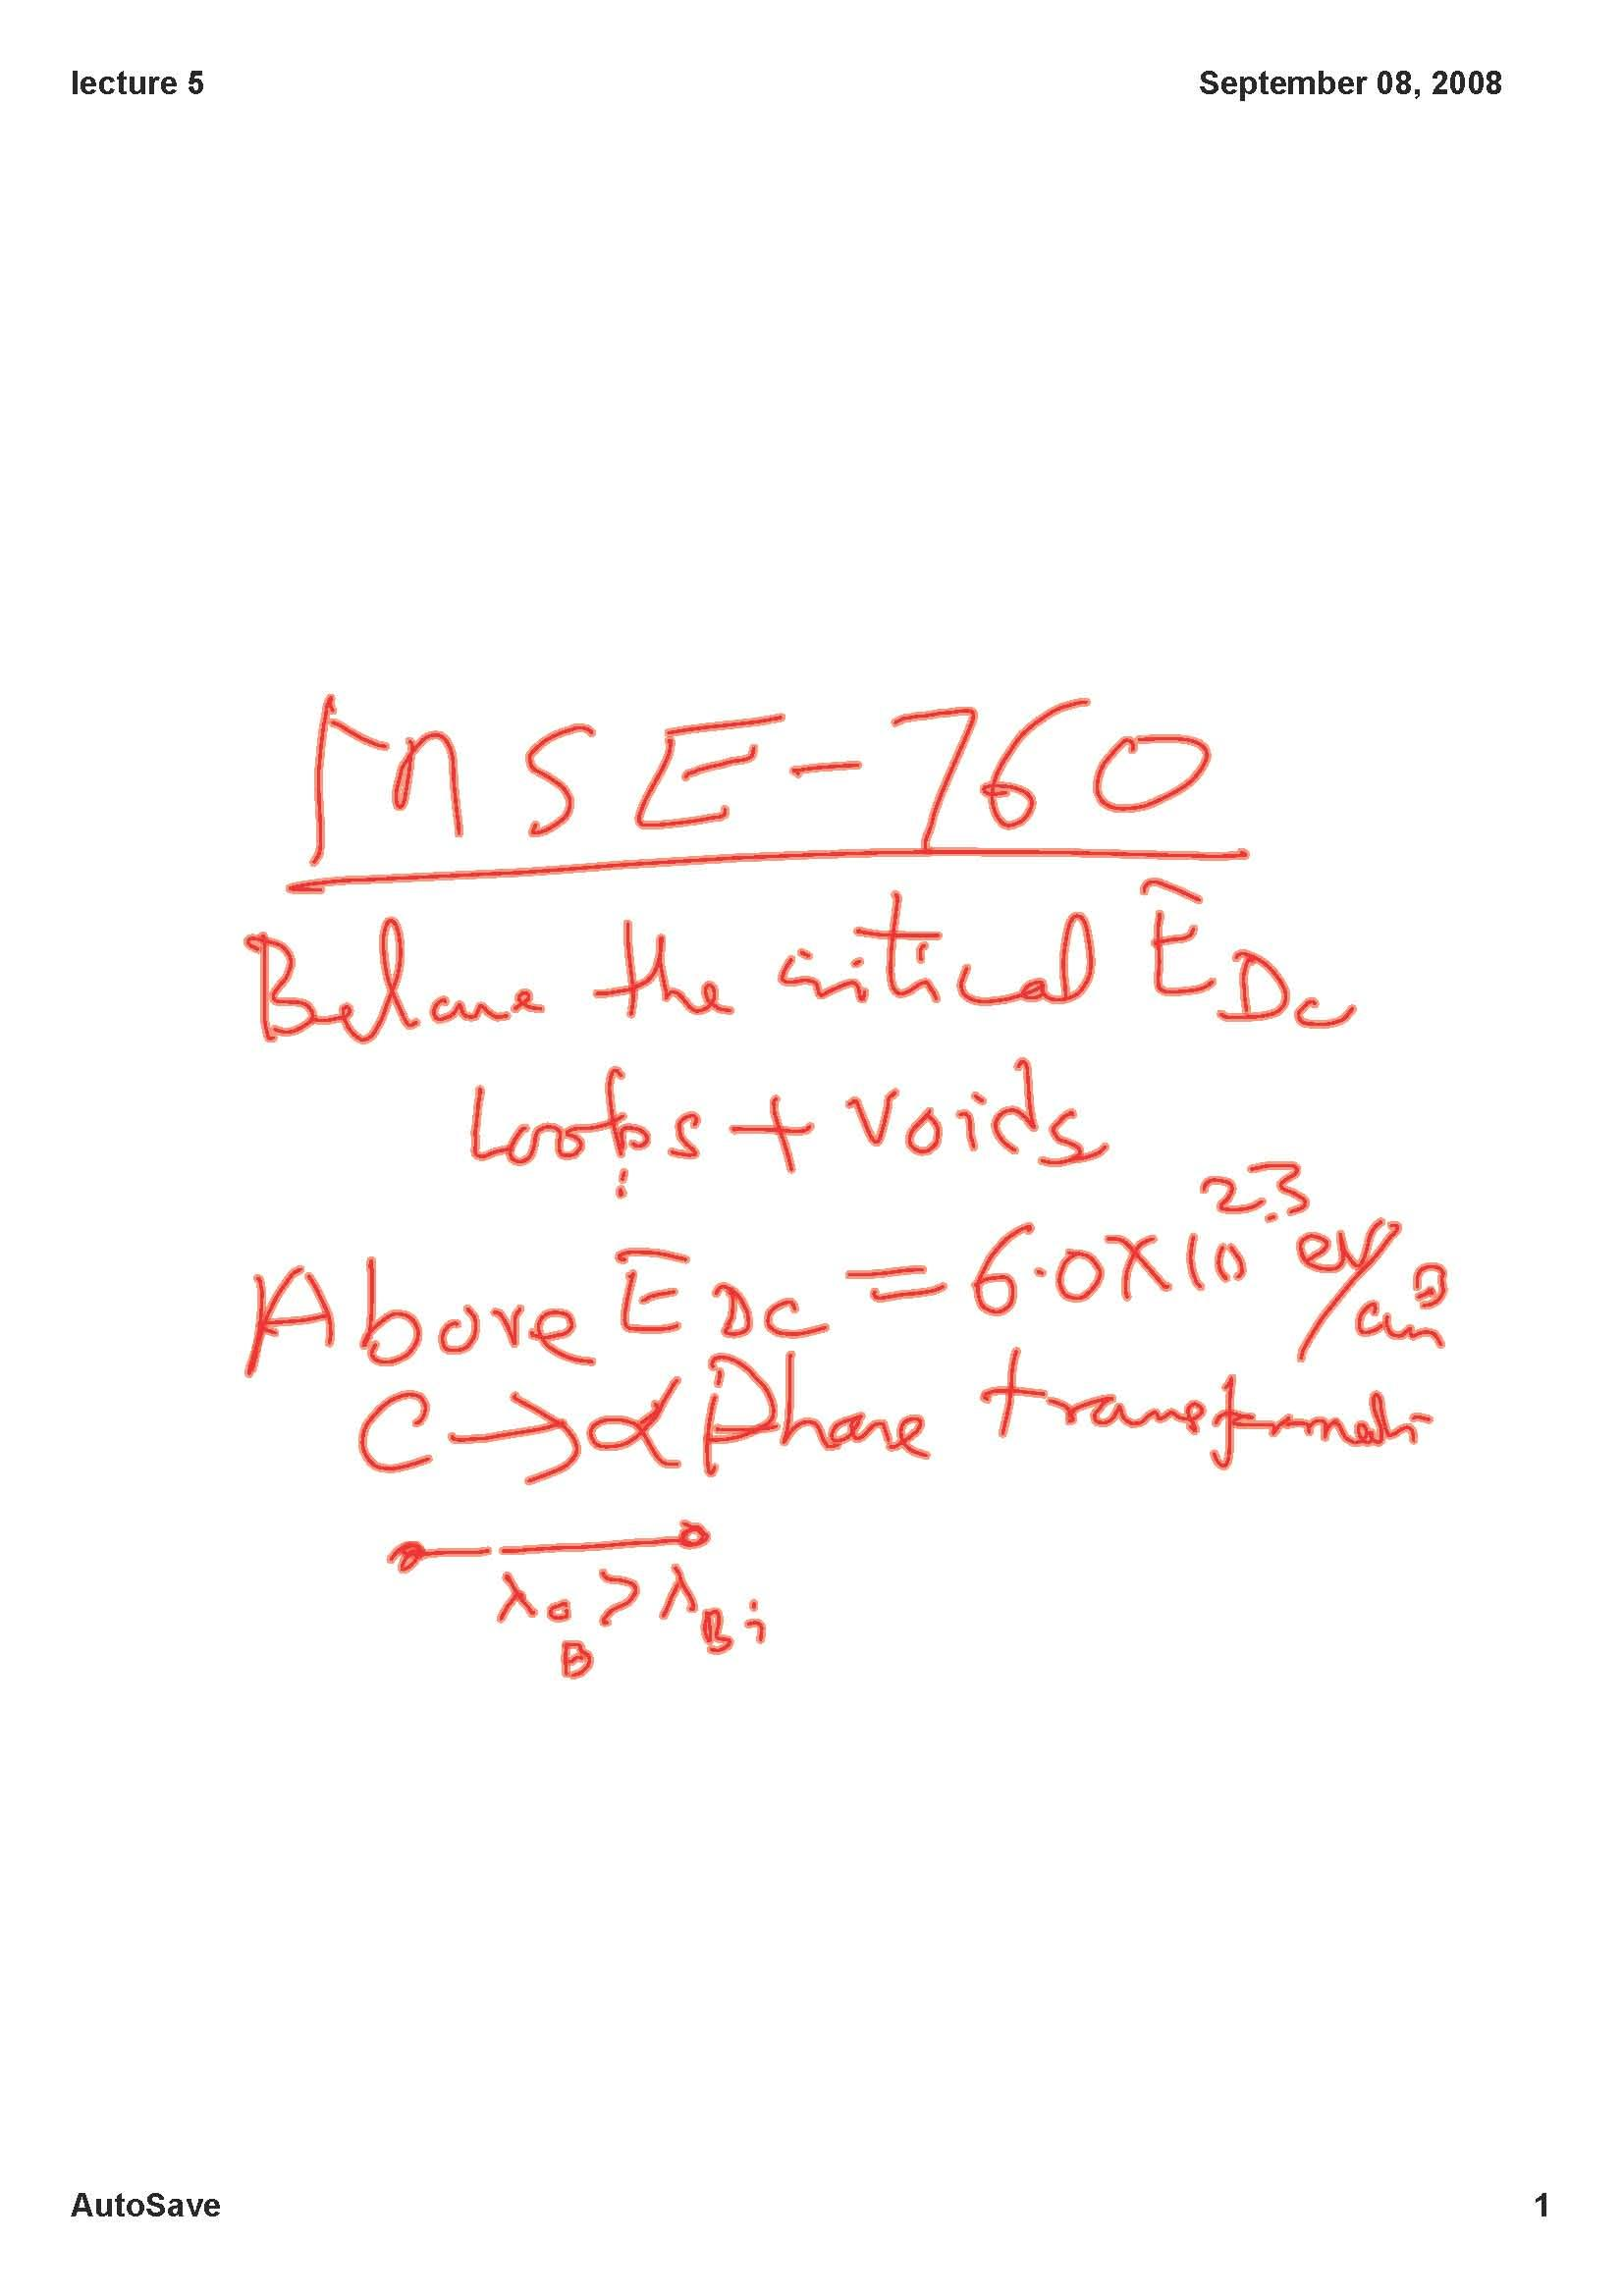 lecture 5
September 08, 2008
MSE-760
Below the critical E̅DC
Loops + voids
Above E̅DC = 6.0×10²³ eV/cm³
C → α Phase transformati
λ > λBi
B
AutoSave
1